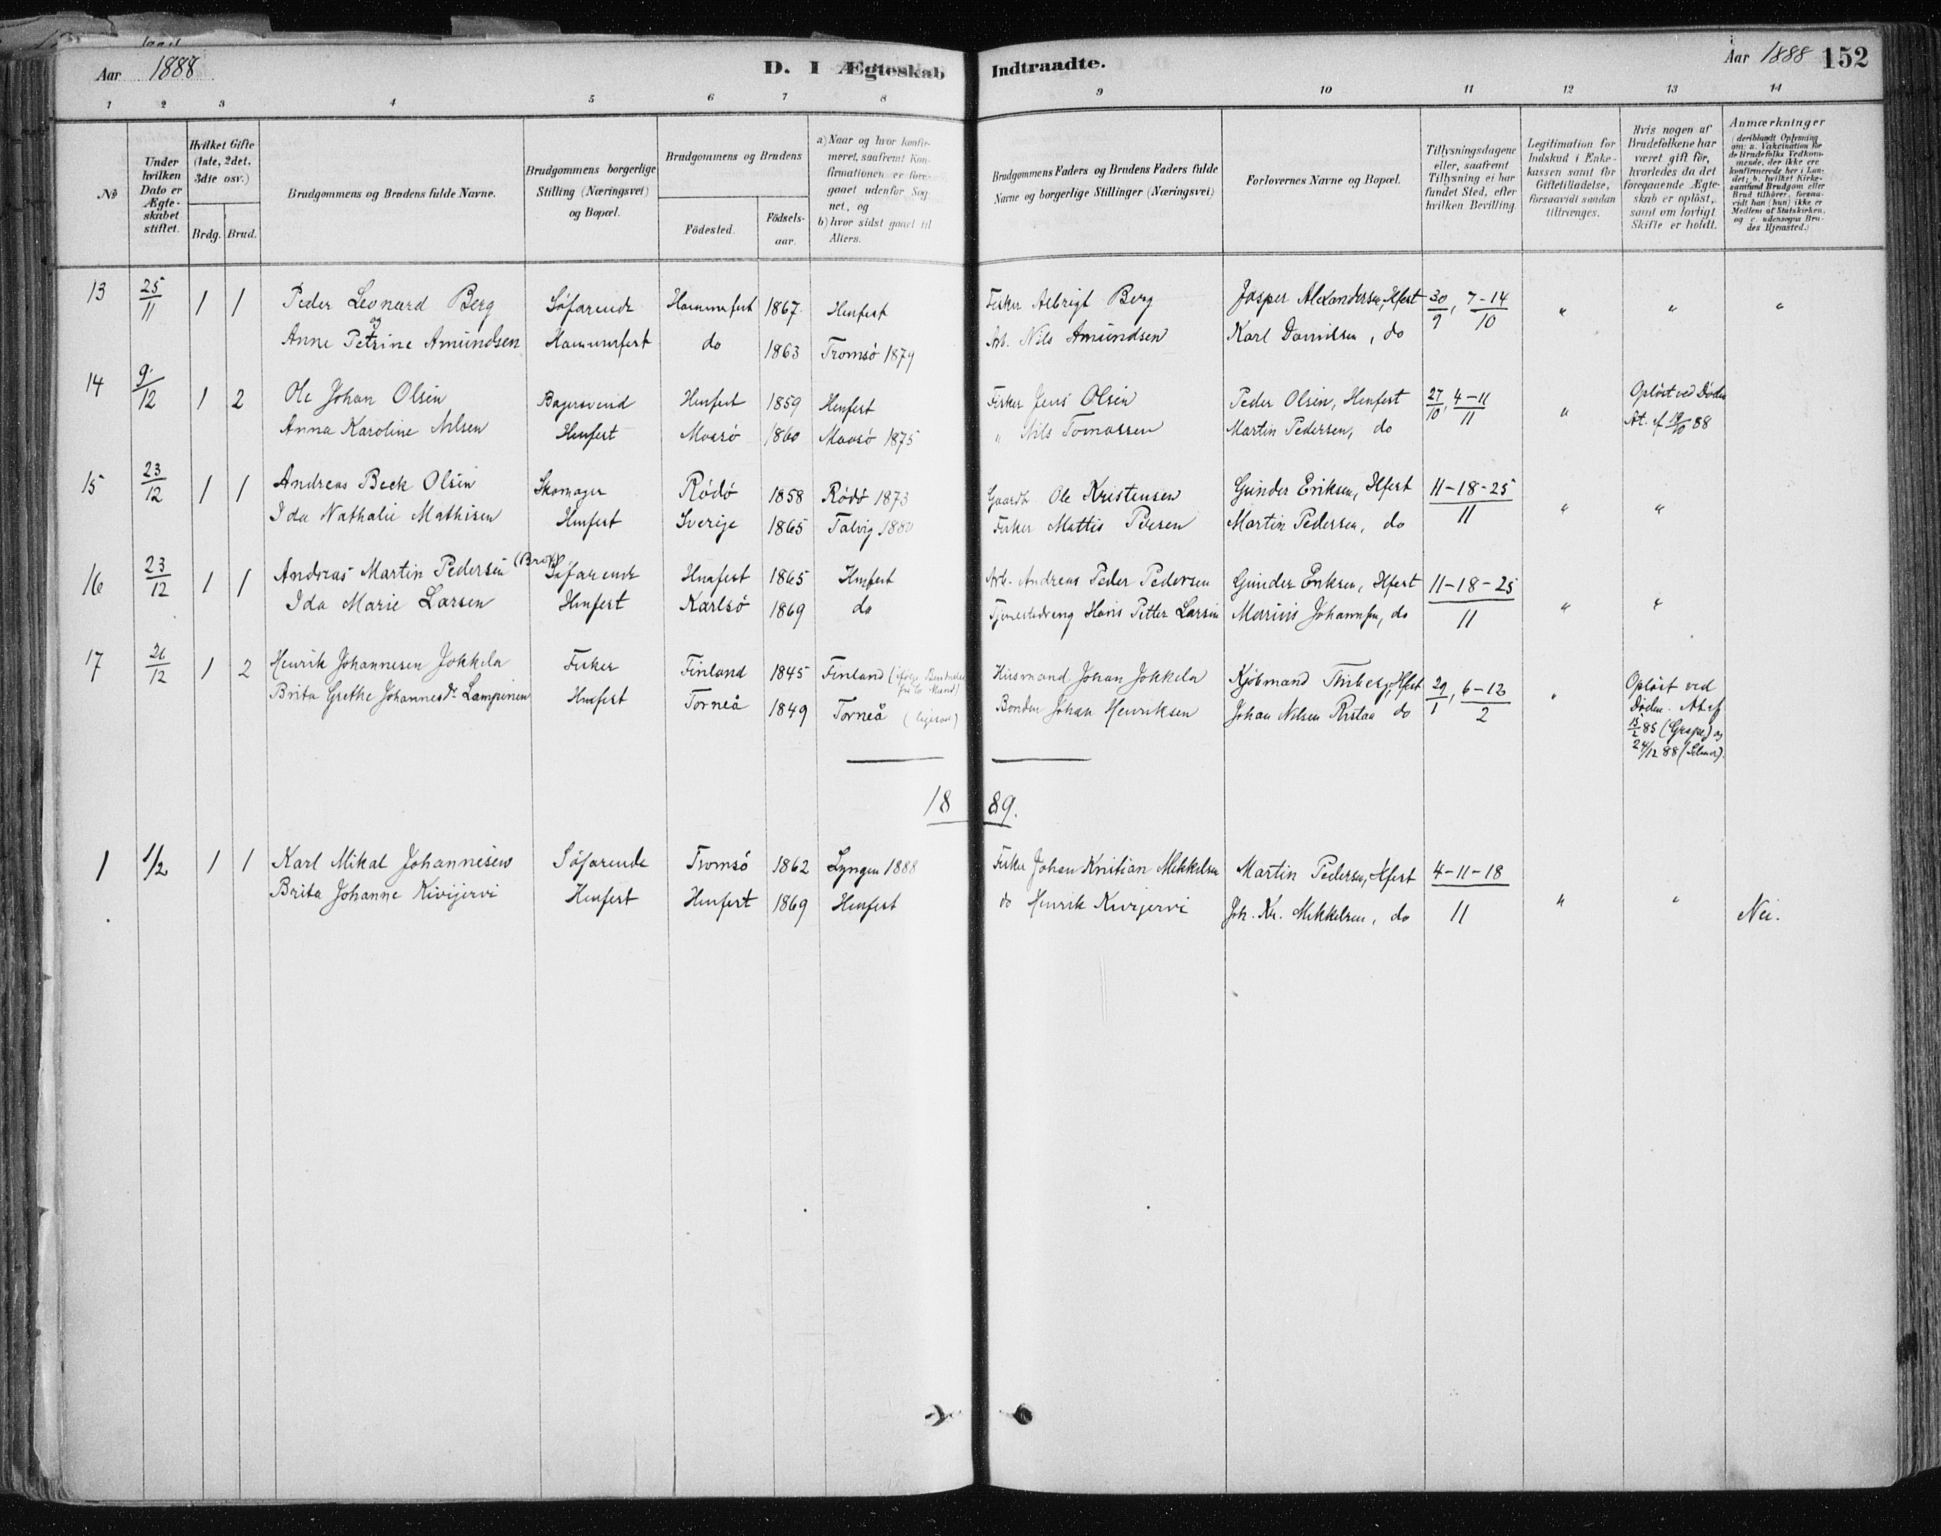 Aar 1888
D. I Ægteskab Indtraadte.
Aar 1888 152
1 2 3 4 5 6 7 8 9 10 11 12 13 14
No
Under hvilken Dato er Ægteskabet stiftet.
Hvilket Gifte (1ste, 2det, 3die osv.)
Brdg. Brud.
Brudgommens og Brudens fulde Navne.
Brudgommens borgerlige Stilling (Næringsvei) og Bopæl.
Brudgommens og Brudens
Födested. Födselsaar.
a) Naar og hvor konfirmeret, saafremt Konfirmationen er foregaaet udenfor Sognet, og
b) hvor sidst gaaet til Alters.
Brudgommens Faders og Brudens Faders fulde Navne og borgerlige Stillinger (Næringsvei)
Forlovernes Navne og Bopæl.
Tillysningsdagene eller, saafremt Tillysning ei har fundet Sted, efter hvilken Bevilling.
Legitimation for Indskud i Enkekassen samt for Giftetilladelse, forsaavidt saadan tiltrænges.
Hvis nogen af Brudefolkene har været gift för, hvorledes da det foregaaende Ægteskab er oplöst, samt om lovligt Skifte er holdt.
Anmærkninger (deriblandt Oplysning om: a. Vakcination for de Brudefolks Vedkommende, der ikke ere konfirmerede her i Landet; b. hvilket Kirkesamfund Brudgom eller Brud tilhörer, forsaavidt han (hun) ikke er Medlem af Statskirken, og c. udensogns Brudes Hjemsted.)
13 25/11 1 1 Peder Leonard Berg Söfarende Hammerfest 1867 Hmfest Fisker Albrigt Berg Jasper Alexandersen, Hfest 30/9, 7-14/10 " " "
og
Anne Petrine Amundsen Hammerfest do 1863 Tromsö 1879 Arb. Nils Amundsen Karl Danielsen, do
14 9/12 1 2 Ole Johan Olsen Bagersvend Hmfest 1859 Hmfest Fisker Jens Olsen Peder Olsen, Hmfest 27/10, 4-11/11 " Oplöst ved Döden
Anna Karoline Nilsen Hmfest Maasö 1860 Maasö 1875 " Nils Tomassen Martin Pedersen, do At. af 19/10 88
15 23/12 1 1 Andreas Beck Olsen Skomager Rödö 1858 Rödö 1873 Gaardb. Ole Kristensen Gunder Eriksen, Hfest 11-18-25/11 " "
Ida Nathalie Mathisen Hmfest Sverige 1865 Talvig 1880 Fisker Mattis Petersen Martin Pedersen, do
16 23/12 1 1 Andreas Martin Pedersen Söfarende Hmfest 1865 Hmfest Arb. Andreas Peder Pedersen Gunder Eriksen, Hfest 11-18-25/11 " "
Ida Marie Larsen Hmfest Karlsö 1869 do Tjenestedreng Hans Petter Larsen Marius Johannsen, do
17 26/12 1 2 Henrik Johannesen Jokkela Fisker Finland 1845 Finland Husmand Johan Jokkela Kjöbmand Finberg, Hfest 29/1, 6-12/2 " Oplöst ved
Brita Grethe Johannesdr. Lampinen Hmfest Torneå 1849 Torneå (ligesaa) Bonden Johan Henriksen Johan Nilsen Ristaa do Döden. At. af
15/2 85 og
24/12 88
1889.
1 1/2 1 1 Karl Mikal Johannesen Söfarende Tromsö 1862 Lyngen 1888 Fisker Johan Kristian Mikkelsen Martin Pedersen, Hfest 4-11-18/11 " "
Brita Johanne Kivijervi Hmfest Hmfest 1869 Hmfest do Henrik Kivijervi Joh. Kr. Mikkelsen, do Nei.